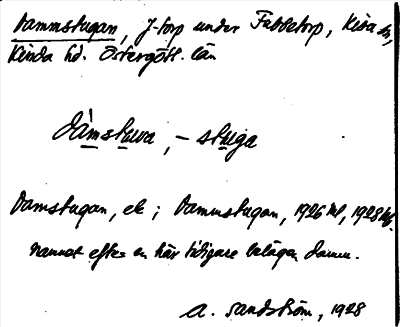 Dammstugan, f-torp under Fabbetorp, Kisa sn,
Kinda hd. Östergötl. län
dàmstuva, - stuga
Damstugan, ek; Dammstugan, 1926 kf, 1928 kf.
Namnet efter en här tidigare belägen damm.
A. Sandström, 1928